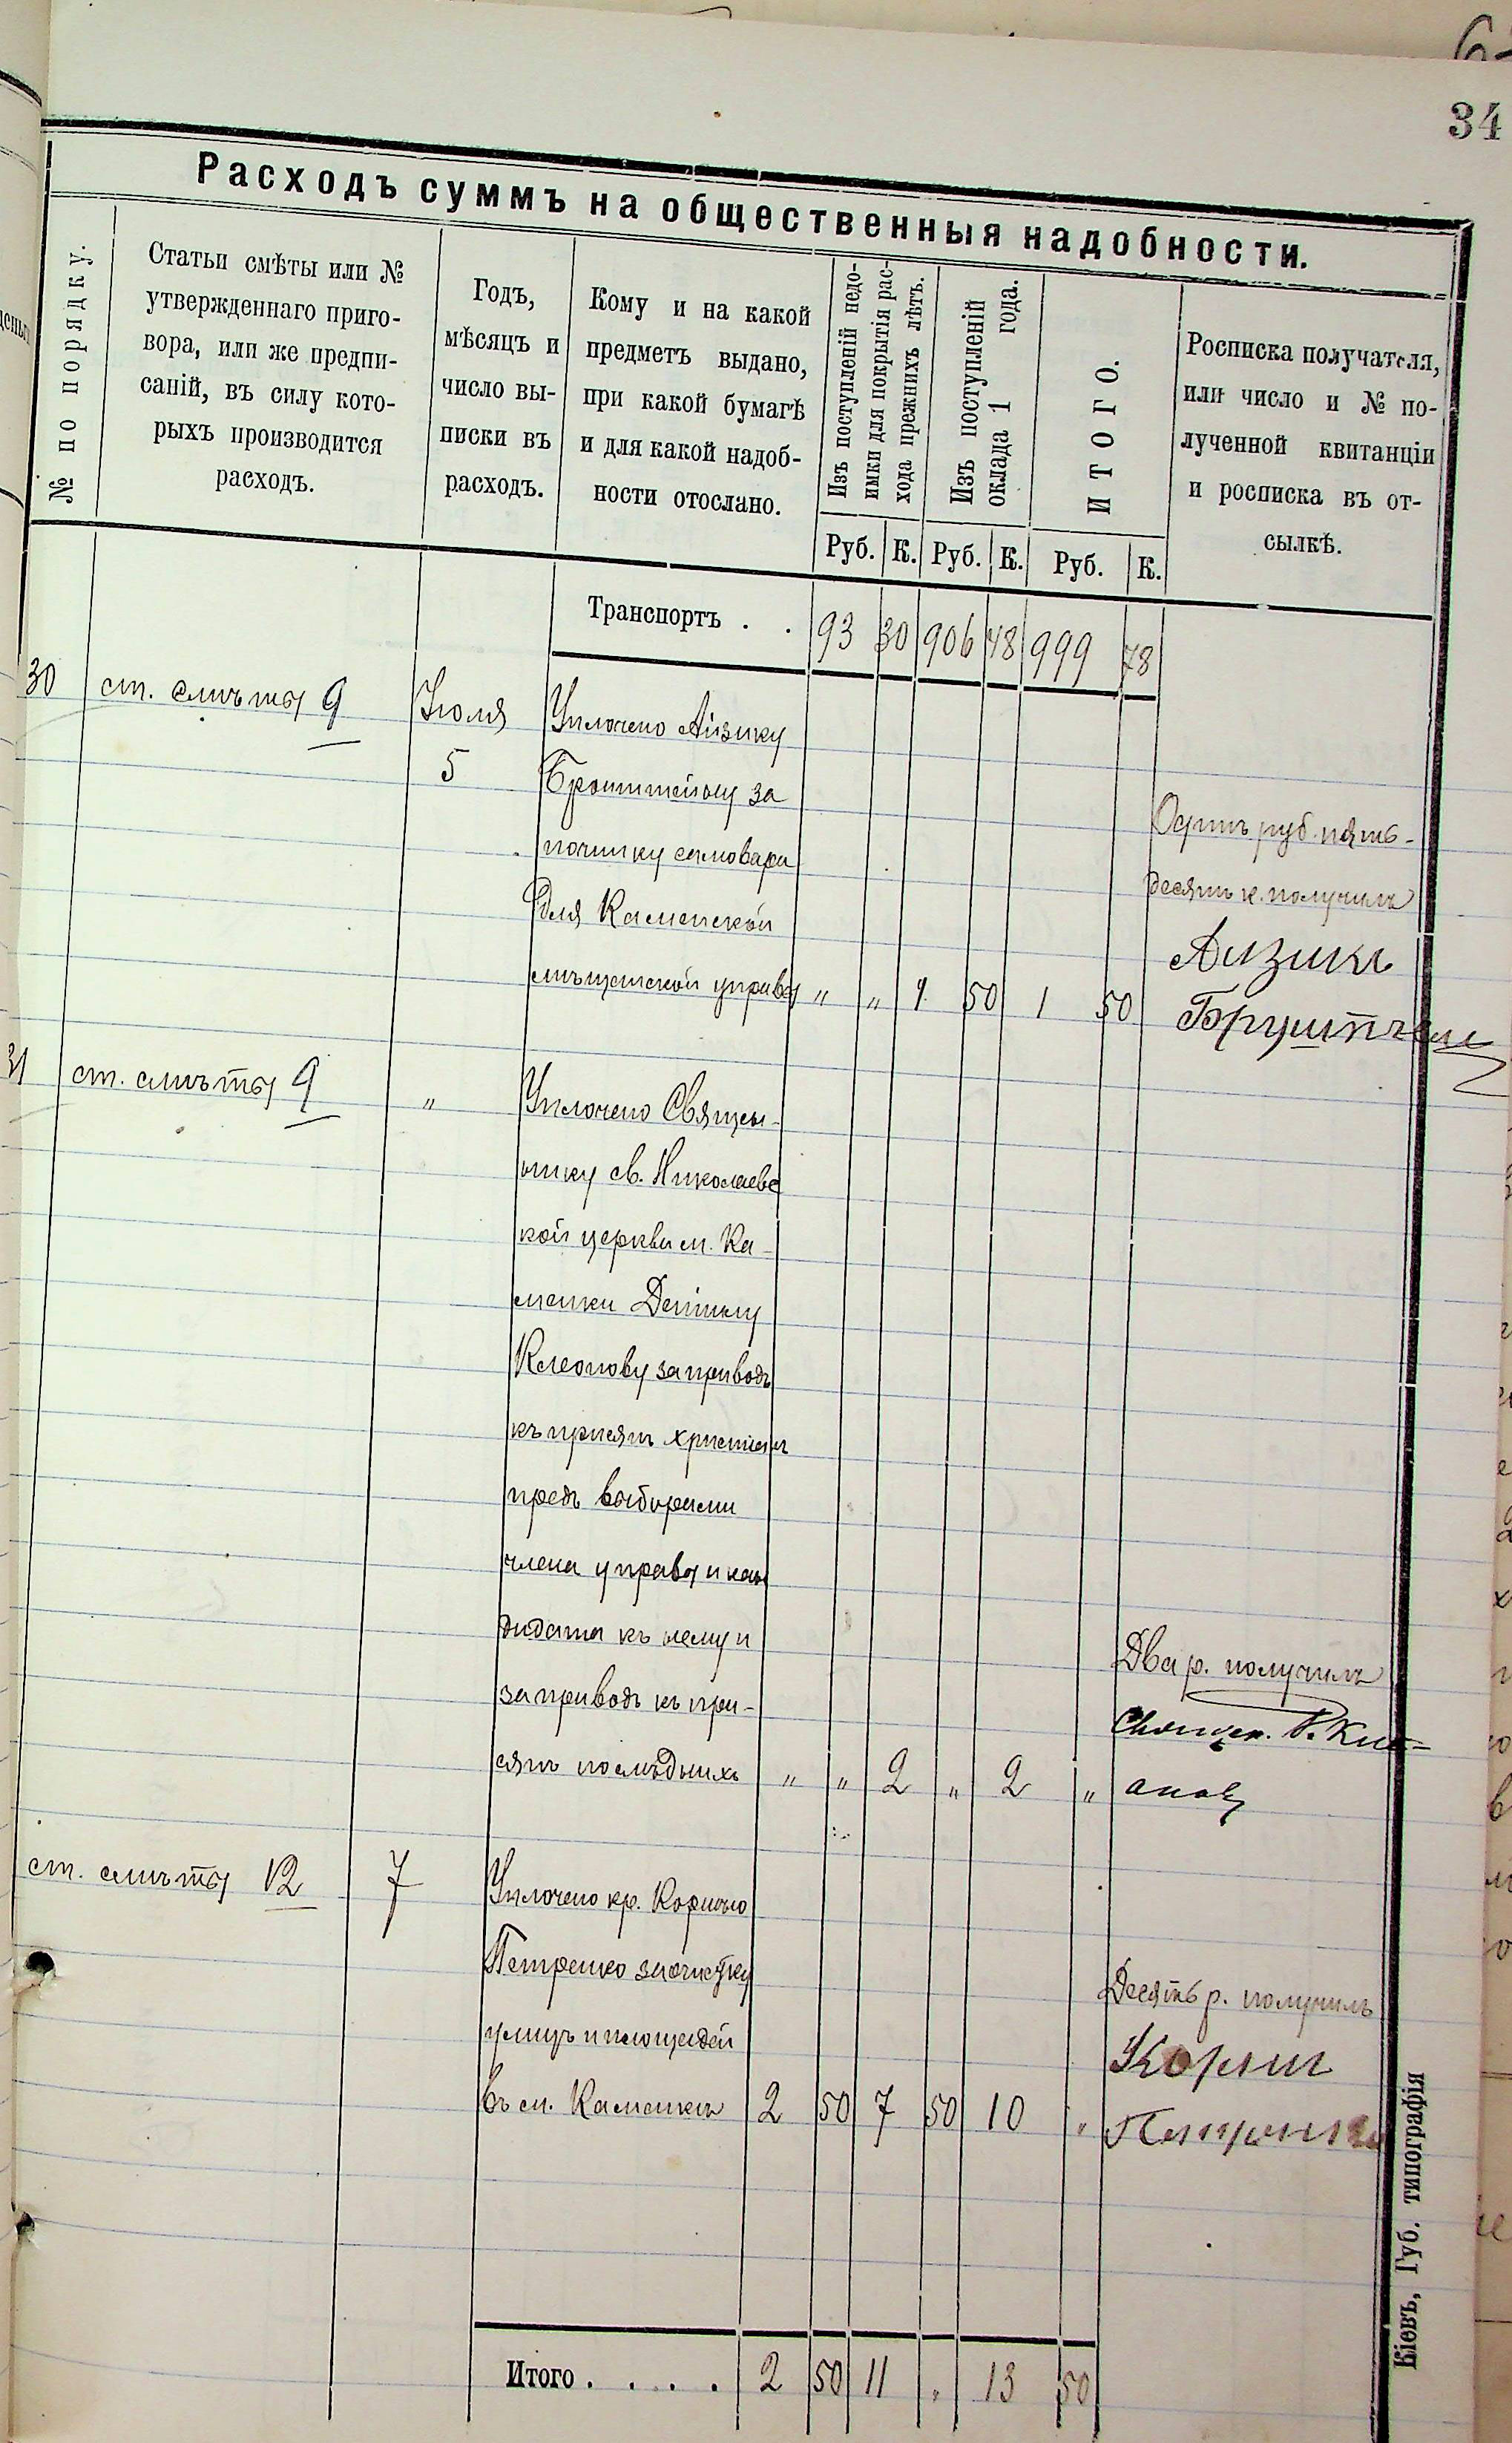 34
Расходъ суммъ на общественныя надобности.
№ по порядку.
Статьи смѣты или №
утвержденнаго приго-
вора, или же предпи-
саній, въ силу кото-
рыхъ производится
расходъ.
Годъ,
мѣсяцъ и
число вы-
писки въ
расходъ.
Кому и на какой
предметъ выдано,
при какой бумагѣ
и для какой надоб-
ности отослано.
Изъ поступленій недо-
имки для покрытія рас-
хода прежнихъ лѣтъ.
Изъ поступленій
оклада 1 года.
ИТОГО.
Росписка получателя,
или число и № по-
лученной квитанціи
и росписка въ от-
сылкѣ.
Руб. К. Руб. К. Руб. К.
Транспортъ . . 93 30 906 48 999 78
30 ст. смѣты 9 Іюля Уплочено Айзику
5 Бронштейну за
починку самовара
Одинъ руб. пять-
для Каменской
десять к. получилъ
Айзикъ
мѣщанской управы " " 1 50 1 50
31 ст. смѣты 9 " Уплочено Священ-
нику св. Николаевс
кой церкви м. Ка-
менки
за приводъ
къ присягѣ христіанъ
предъ выборами
члена управы и кан
дидата къ нему и
Два р. получилъ
за приводъ къ при-
Священ.
сягѣ послѣднихъ " " 2 " 2 "
ст. смѣты 12 7 Уплочено кр. Корнію
Петренко за очистку
Десять р. получилъ
улицъ и площадей
Корній
въ м. Каменкѣ 2 50 7 50 10 "
Петренко
Итого . . . . 2 50 11 " 13 50
Кіевъ, Губ. типографія